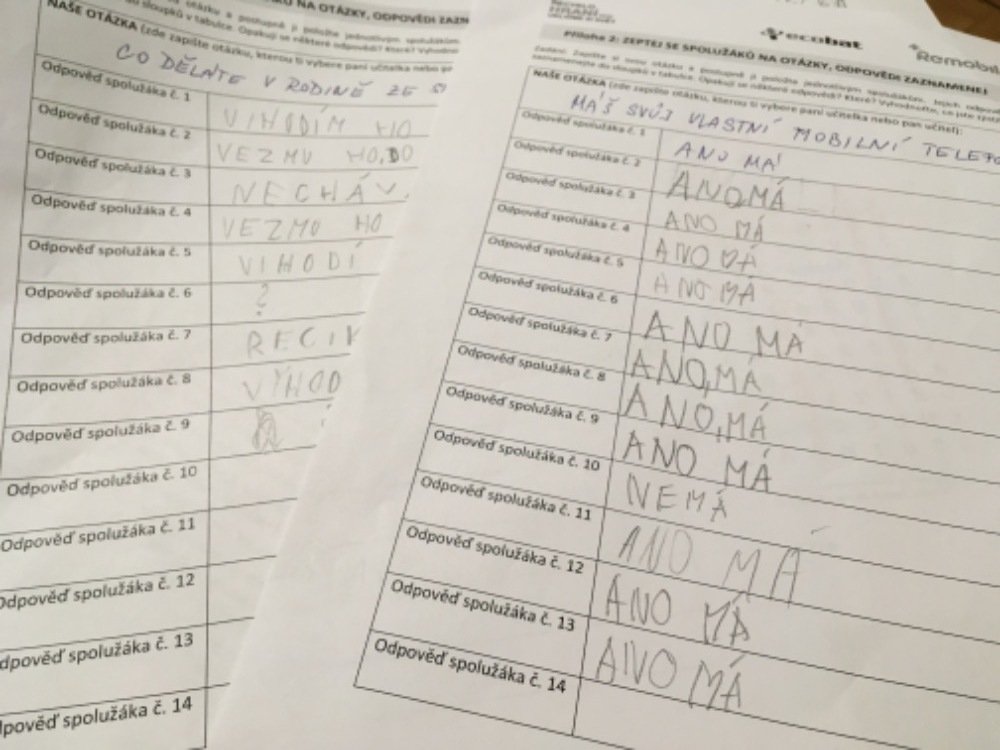 NA OTÁZKY, ODPOVĚDI ZAZN
otázku a postupně ji položte jednotlivým spolužákům.
do sloupků v tabulce. Opakují se některé odpovědi? Které?
NAŠE OTÁZKA (zde zapište otázku, kterou si vybere paní učitelka nebo
CO DĚLÁTE V RODINĚ ZE
Odpověď spolužáka č. 1 VIHODÍM HO
Odpověď spolužáka č. 2 VEZMU HO,DO
Odpověď spolužáka č. 3 NECHÁV
Odpověď spolužáka č. 4 VEZMU HO
Odpověď spolužáka č. 5 VIHODÍ
Odpověď spolužáka č. 6 ?
Odpověď spolužáka č. 7 RECIK
Odpověď spolužáka č. 8 VYHOD
Odpověď spolužáka č. 9
Odpověď spolužáka č. 10
Odpověď spolužáka č. 11
Odpověď spolužáka č. 12
dpověď spolužáka č. 13
pověď spolužáka č. 14
ecobat
Remobil
Příloha 2: ZEPTEJ SE SPOLUŽÁKŮ NA OTÁZKY, ODPOVĚDI ZAZNAMENEJ
NAŠE OTÁZKA (zde zapište otázku, kterou si vybere paní učitelka nebo pan učitel):
MÁŠ SVŮJ VLASTNÍ MOBILNÍ TELEFO
Odpověď spolužáka č. 1 ANO MÁ
Odpověď spolužáka č. 2 ANO,MÁ
Odpověď spolužáka č. 3 ANO MÁ
Odpověď spolužáka č. 4 ANO MÁ
Odpověď spolužáka č. 5 ANO MÁ
Odpověď spolužáka č. 6 ANO MÁ
Odpověď spolužáka č. 7 ANO,MÁ
Odpověď spolužáka č. 8 ANO,MÁ
Odpověď spolužáka č. 9 ANO MÁ
Odpověď spolužáka č. 10 NEMÁ
Odpověď spolužáka č. 11 ANO MÁ
Odpověď spolužáka č. 12 ANO MÁ
Odpověď spolužáka č. 13 ANO MÁ
Odpověď spolužáka č. 14